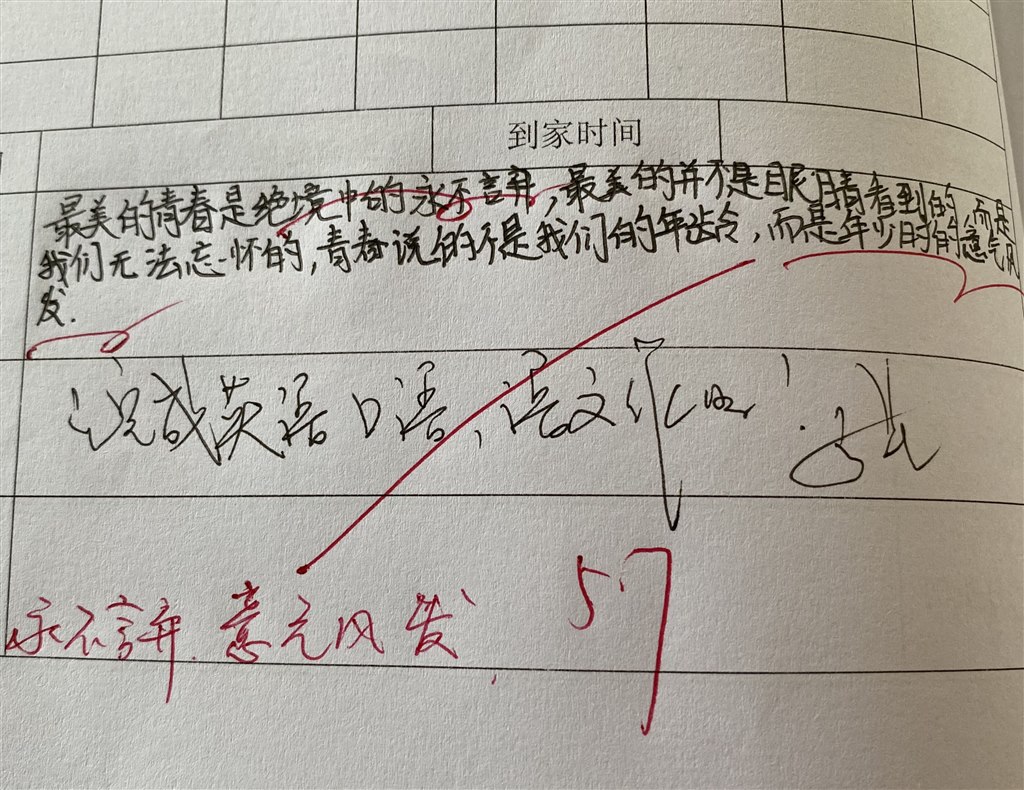 到家时间
最美的青春是绝境中的永不言弃,最美的并不是眼睛看到的,而是
我们无法忘怀的,青春说的不是我们的年龄,而是年少时有的意气风
发.
完成英语口语,语文
永不言弃.意气风发
5.7